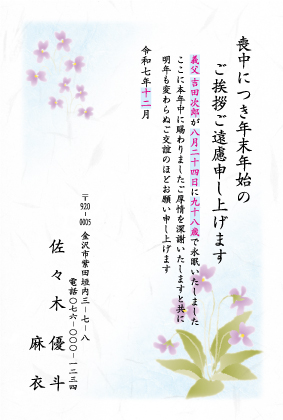 喪中につき年末年始の
ご挨拶ご遠慮申し上げます
義父 吉田次郎が八月二十四日に九十八歳で永眠いたしました
ここに本年中に賜わりましたご厚情を深謝いたしますと共に
明年も変わらぬご交誼のほどお願い申し上げます
令和七年十二月
〒920-0005 金沢市紫田垣内三-七-八
電話〇七六-〇〇〇-一二三四
佐々木 優斗
麻衣